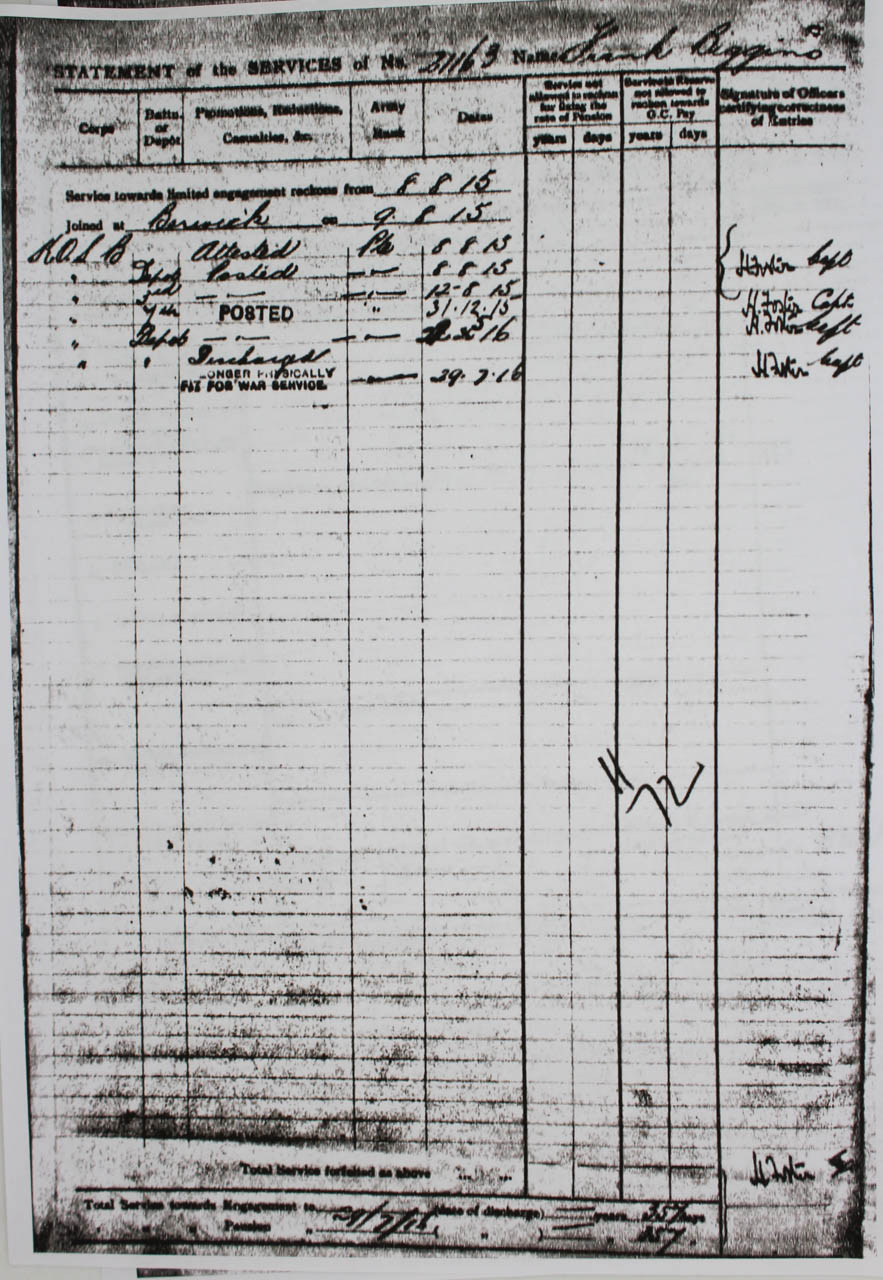 STATEMENT of the SERVICES of No. 21163 Name Frank Biggins
Corps
Battn. or Depôt
Promotions, Reductions, Casualties, &c.
Army Rank
Dates
Service not allowed to reckon for fixing the rate of Pension
years days
Service in Reserve not allowed to reckon towards G.C. Pay
years days
Signature of Officers certifying correctness of Entries
Service towards limited engagement reckons from 8 8 15
Joined at Berwick on 9 8 15
K.O.S.B Attested Pte 8 8 15
" Depot Posted — " — 8 8 15 Capt
" 3rd — " — — " — 12-8-15 Capt
" 9th POSTED " 31.12.15 Capt
" Depot — " — — " — 5 16
" " Discharged Capt
LONGER PHYSICALLY
FIT FOR WAR SERVICE. 29.7.16
11/72
Total Service forfeited as above ... ...
Total Service towards Engagement to 29/7/16 (date of discharge) — years 357 days
" " Pension " ( " ) — " 357